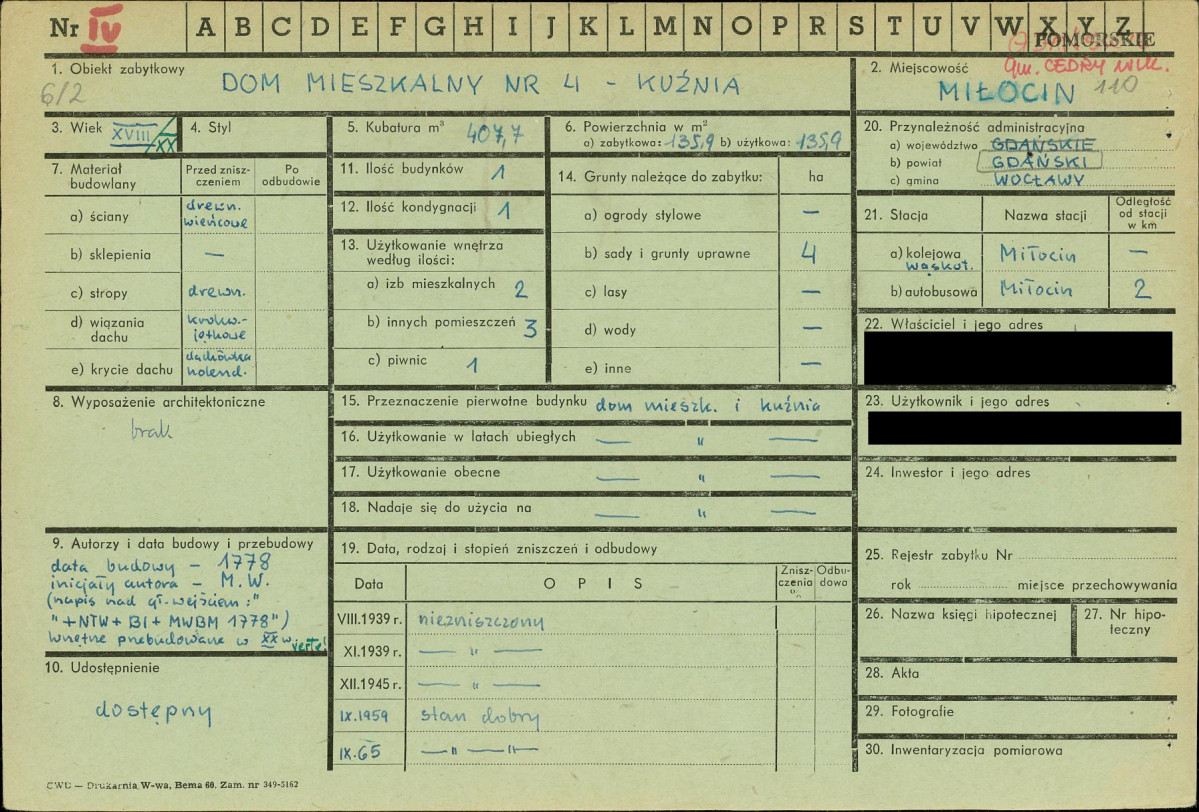 Nr IV A B C D E F G H I J K L M N O P R S T U V W X Y Z
POMORSKIE
1. Obiekt zabytkowy
6/2
DOM MIESZKALNY NR 4 - KUŹNIA
2. Miejscowość
gm. CEDRY WLK.
MIŁOCIN 110
3. Wiek XVIII/XX
4. Styl
5. Kubatura m³ 407,7
6. Powierzchnia w m²
a) zabytkowa: 135,9 b) użytkowa: 135,9
7. Materiał budowlany
Przed znisz-
czeniem
Po
odbudowie
a) ściany drewn.
wieńcowe
b) sklepienia —
c) stropy drewn.
d) wiązania
dachu
krokw.-
jętkowe
e) krycie dachu
dachówka
holend.
8. Wyposażenie architektoniczne
brak
9. Autorzy i data budowy i przebudowy
data budowy - 1778
inicjały autora - M.W.
(napis nad gł. wejściem:"
"+NTW+BI+MWBM 1778")
Wnętrze przebudowane w XX w verte!
10. Udostępnienie
dostępny
11. Ilość budynków 1
12. Ilość kondygnacji 1
13. Użytkowanie wnętrza
według ilości:
a) izb mieszkalnych 2
b) innych pomieszczeń 3
c) piwnic 1
14. Grunty należące do zabytku: ha
a) ogrody stylowe —
b) sady i grunty uprawne 4
c) lasy —
d) wody —
e) inne —
15. Przeznaczenie pierwotne budynku dom mieszk. i kuźnia
16. Użytkowanie w latach ubiegłych — " —
17. Użytkowanie obecne — " —
18. Nadaje się do użycia na — " —
19. Data, rodzaj i stopień zniszczeń i odbudowy
Data OPIS Znisz-
czenia
%
Odbu-
dowa
VIII.1939 r. niezniszczony
XI.1939 r. — " —
XII.1945 r. — " —
IX.1959 stan dobry
IX.65 — " — " —
20. Przynależność administracyjna
a) województwo GDAŃSKIE
b) powiat GDAŃSKI
c) gmina WOCŁAWY
21. Stacja Nazwa stacji Odległość
od stacji
w km
a) kolejowa Miłocin —
wąskot.
b) autobusowa Miłocin 2
22. Właściciel i jego adres
23. Użytkownik i jego adres
24. Inwestor i jego adres
25. Rejestr zabytku Nr
rok miejsce przechowywania
26. Nazwa księgi hipotecznej
27. Nr hipo-
teczny
28. Akta
29. Fotografie
30. Inwentaryzacja pomiarowa
CWD — Drukarnia W-wa, Bema 60. Zam. nr 349-5162